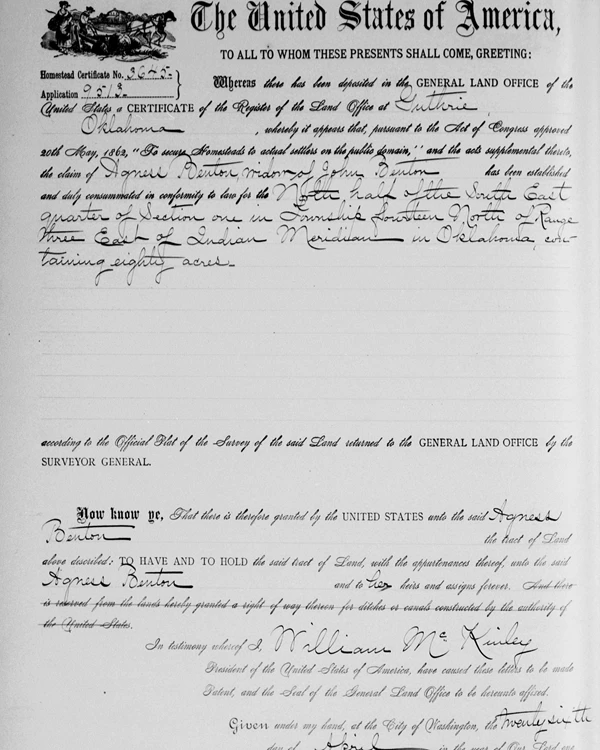 The United States of America,
TO ALL TO WHOM THESE PRESENTS SHALL COME, GREETING:
Homestead Certificate No. 3645
Application 9513
Whereas there has been deposited in the GENERAL LAND OFFICE of the
United States a CERTIFICATE of the Register of the Land Office at Guthrie,
Oklahoma, whereby it appears that, pursuant to the Act of Congress approved
20th May, 1862, "To secure Homesteads to actual settlers on the public domain," and the acts supplemental thereto,
the claim of Agness Benton, widow of John Benton has been established
and duly consummated in conformity to law for the North half of the South East
quarter of Section one in Township fourteen North of Range
three East of Indian Meridian in Oklahoma, con-
taining eighty acres.
according to the Official Plat of the Survey of the said Land returned to the GENERAL LAND OFFICE by the
SURVEYOR GENERAL.
Now know ye, That there is therefore granted by the UNITED STATES unto the said Agness
Benton the tract of Land
above described: TO HAVE AND TO HOLD the said tract of Land, with the appurtenances thereof, unto the said
Agness Benton and to her heirs and assigns forever. And there
is reserved from the lands hereby granted a right of way thereon for ditches or canals constructed by the authority of
the United States.
In testimony whereof I, William McKinley
President of the United States of America, have caused these letters to be made
Patent, and the Seal of the General Land Office to be hereunto affixed.
Given under my hand, at the City of Washington, the twenty sixth
day of April in the year of Our Lord one